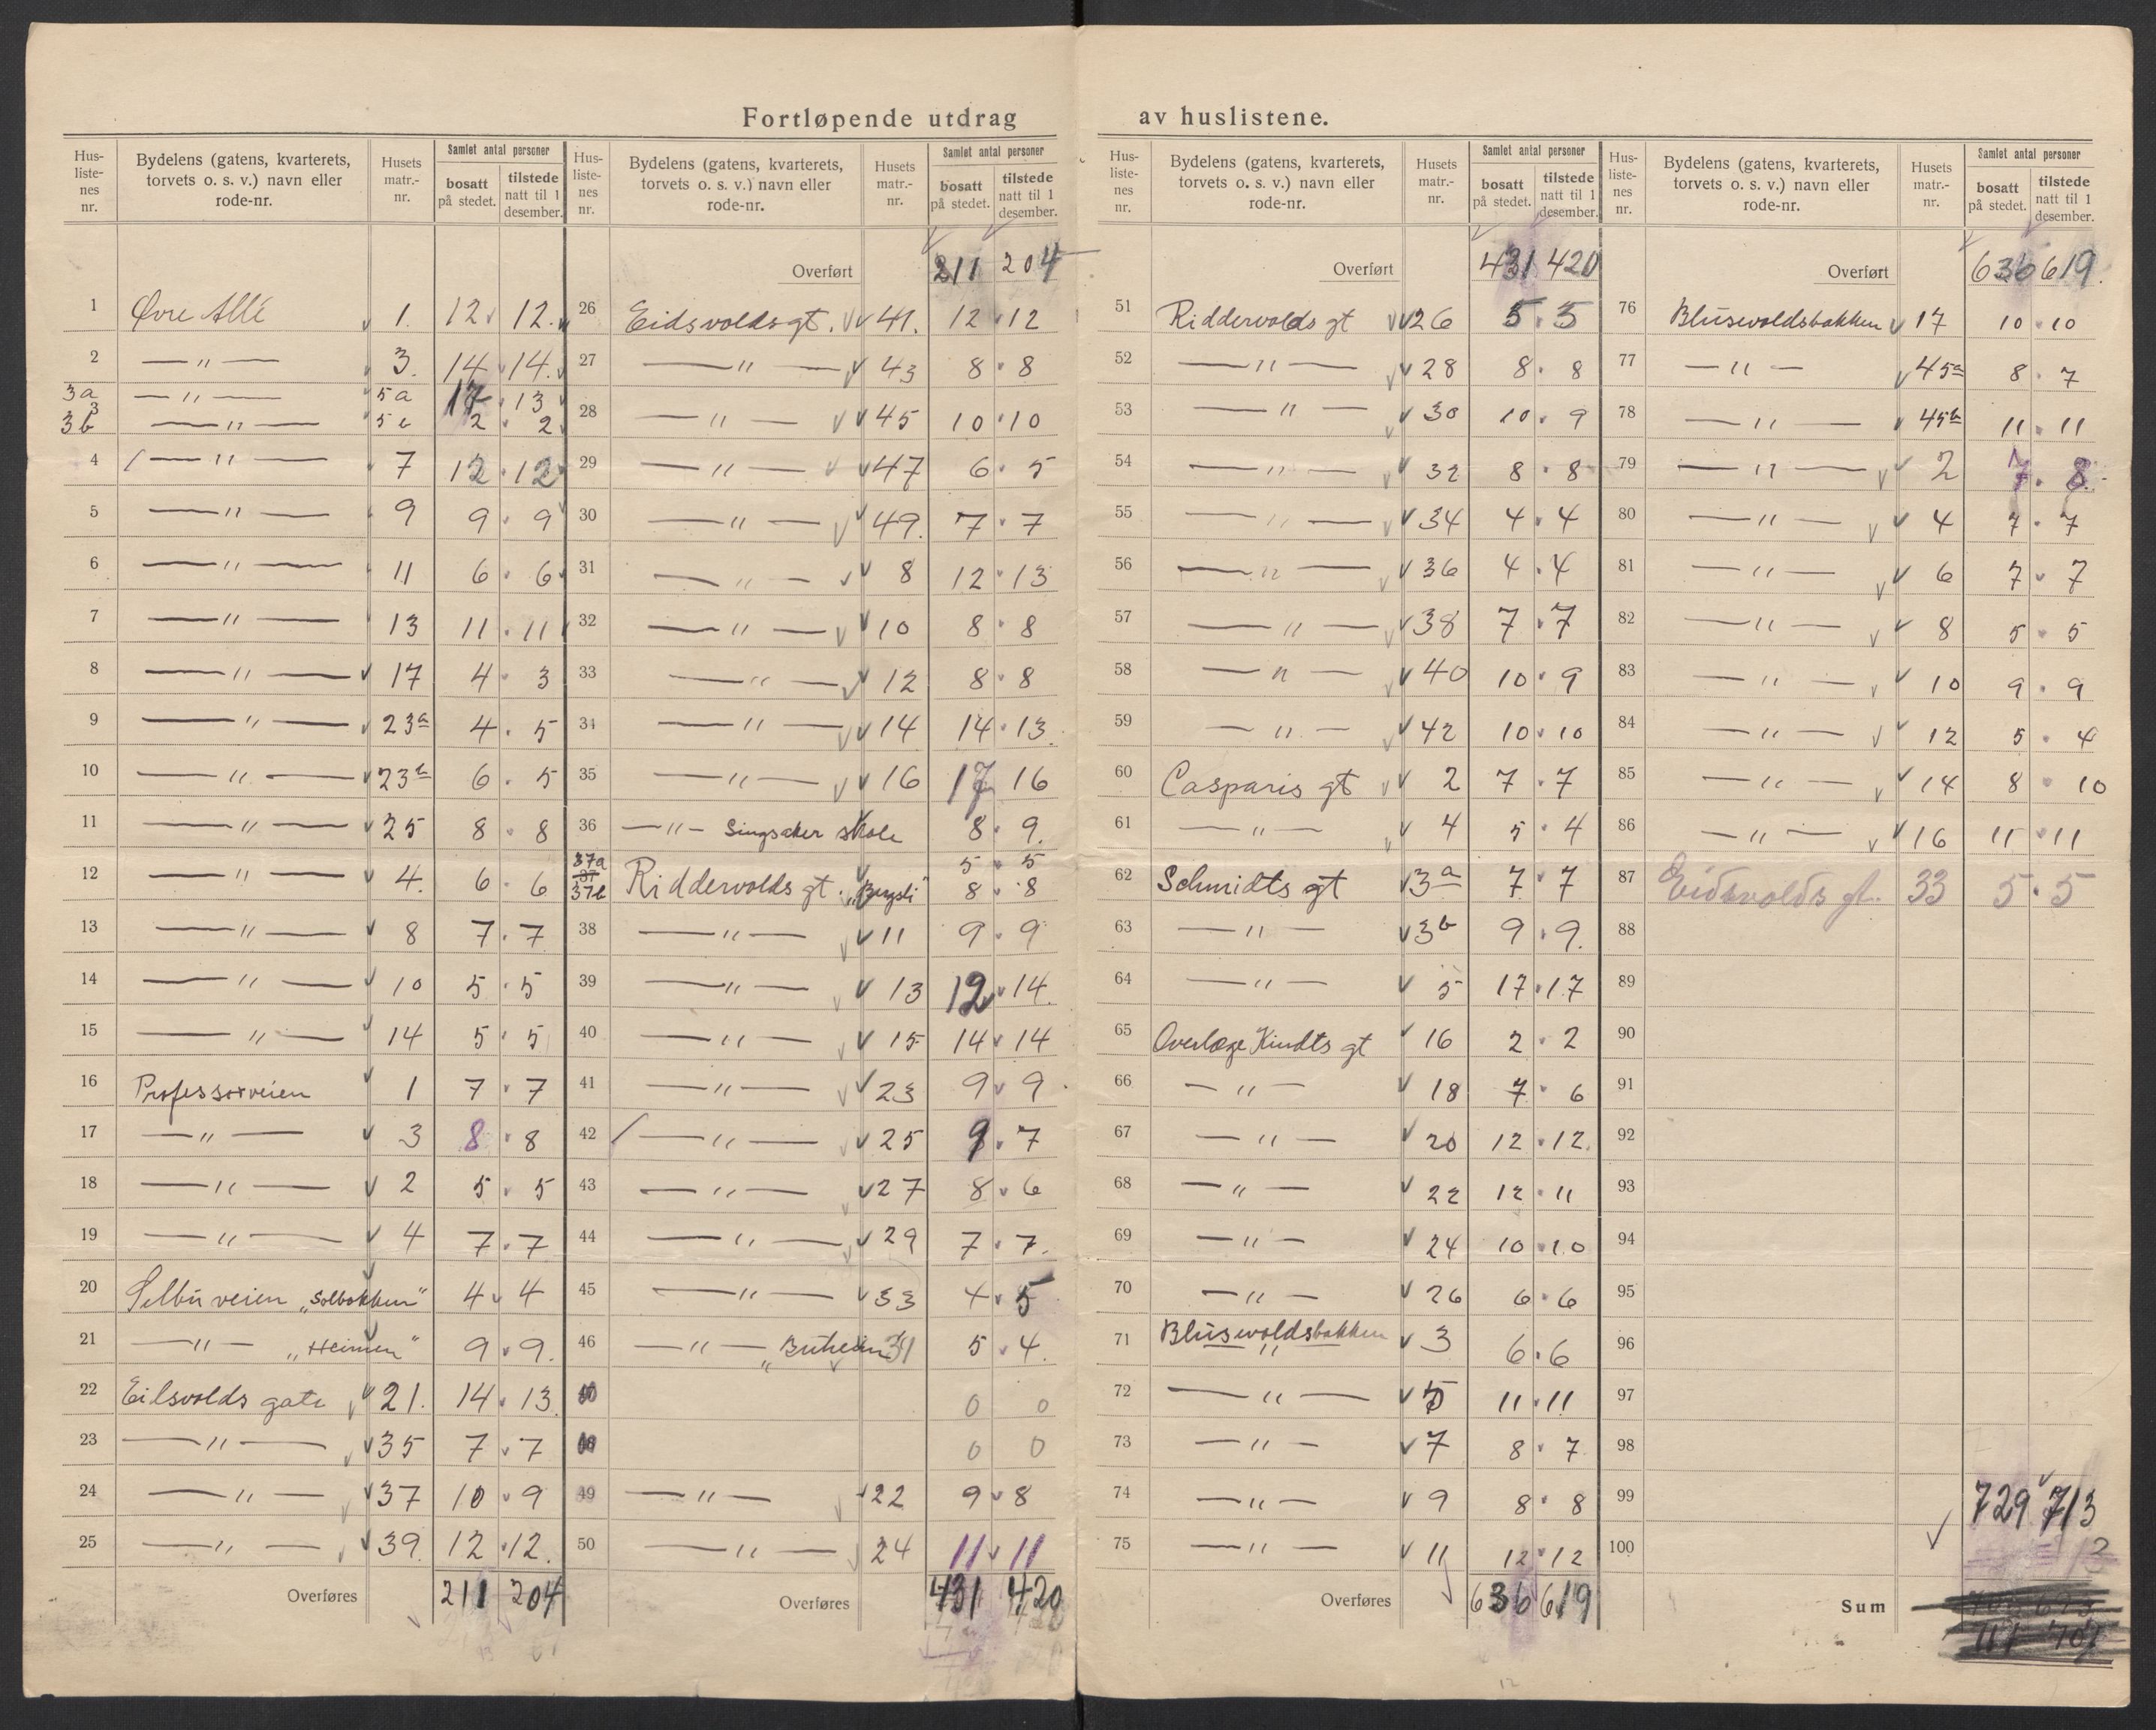 Fortløpende utdrag av huslistene.
Hus-listenes nr. Bydelens (gatens, kvarterets, torvets o. s. v.) navn eller rode-nr. Husets matr.-nr. Samlet antal personer bosatt på stedet. tilstede natt til 1 desember.
1 Øvre Allé 1. 12 12.
2 —"— 3. 14 14.
3a —"— 5a 17 13
3
3b —"— 5b 2 2
4 —"— 7 12 12
5 —"— 9 9 9
6 —"— 11 6 6
7 —"— 13 11 11
8 —"— 17 4 3
9 —"— 23a 4 5
10 —"— 23b 6 5
11 —"— 25 8 8
12 —"— 4. 6 6
13 —"— 8 7 7
14 —"— 10 5 5
15 —"— 14 5 5
16 Professorveien 1 7 7
17 —"— 3 8 8
18 —"— 2 5 5
19 —"— 4 7 7
20 Selbuveien „Solbakken" 4 4
21 —"— „Heimen" 9 9.
22 Eidsvolds gate 21. 14 13
23 —"— 35 7 7
24 —"— 37 10 9
25 —"— 39. 12 12.
Overføres 211 204
Hus-listenes nr. Bydelens (gatens, kvarterets, torvets o. s. v.) navn eller rode-nr. Husets matr.-nr. Samlet antal personer bosatt på stedet. tilstede natt til 1 desember.
Overført 211 204
26 Eidsvoldsgt. 41. 12 12
27 —"— 43 8 8
28 —"— 45 10 10
29 —"— 47 6 5
30 —"— 49. 7 7
31 —"— 8 12 13
32 —"— 10 8 8
33 —"— 12 8 8
34 —"— 14 14 13.
35 —"— 16 17 16
36 —"— Singsaker skole 8 9.
37a 5 5
37
37b Riddervolds gt. „Bergsli" 8 8
38 —"— 11 9 9
39 —"— 13 12 14.
40 —"— 15 14 14
41 —"— 23 9 9
42 —"— 25 9 7
43 —"— 27 8 6
44 —"— 29 7 7.
45 —"— 33 4 5
46 —"— 31 5 4.
0 0
0 0
49 —"— 22 9 8
50 —"— 24 11 11
Overføres 431 420
Hus-listenes nr. Bydelens (gatens, kvarterets, torvets o. s. v.) navn eller rode-nr. Husets matr.-nr. Samlet antal personer bosatt på stedet. tilstede natt til 1 desember.
Overført 431 420
51 Riddervolds gt 26 5 5
52 —"— 28 8 8
53 —"— 30 10 9
54 —"— 32 8 8
55 —"— 34 4 4
56 —"— 36 4 4
57 —"— 38 7 7
58 —"— 40 10 9
59 —"— 42 10 10
60 Casparis gt 2 7 7
61 —"— 4 5 4
62 Schmidts gt 3a 7 7
63 —"— 3b 9 9.
64 —"— 5 17 17
65 Overlæge Kindts gt 16 2 2
66 —"— 18 7 6
67 —"— 20 12 12.
68 —"— 22 12 11
69 —"— 24 10 10
70 —"— 26 6 6
71 Blusevoldsbakken 3 6 6
72 —"— 5 11 11
73 —"— 7 8 7
74 —"— 9 8 8
75 —"— 11 12 12
Overføres 636 619
Hus-listenes nr. Bydelens (gatens, kvarterets, torvets o. s. v.) navn eller rode-nr. Husets matr.-nr. Samlet antal personer bosatt på stedet. tilstede natt til 1 desember.
Overført 636 619.
76 Blusevoldsbakken 17 10 10
77 —"— 45a 8 7
78 —"— 45b 11 11
79 —"— 2 7 8
80 —"— 4 7 7
81 —"— 6 7 7
82 —"— 8 5 5
83 —"— 10 9 9
84 —"— 12 5 4
85 —"— 14 8 10
86 —"— 16 11 11
87 Eidsvolds gt. 33 5 5
88
89
90
91
92
93
94
95
96
97
98
99 729 713
100
Sum